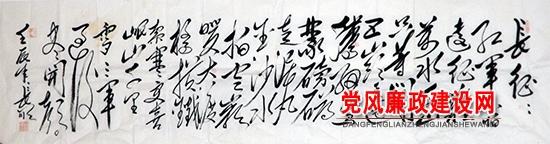 長征：
红军不怕
远征难
万水千山
只等闲
五岭逶迤
腾细浪乌
蒙磅礴
走泥丸
金沙水
拍云崖
暖大渡
桥横铁
索寒更喜
岷山千里
雪三军
过后
尽开颜
壬辰年
党风廉政建设网
DANGFENGLIANZHENGJIANSHEWANG